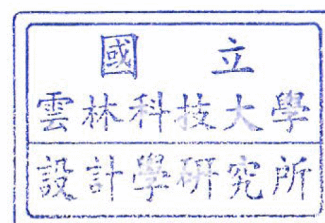 國立
雲林科技大學
設計學研究所